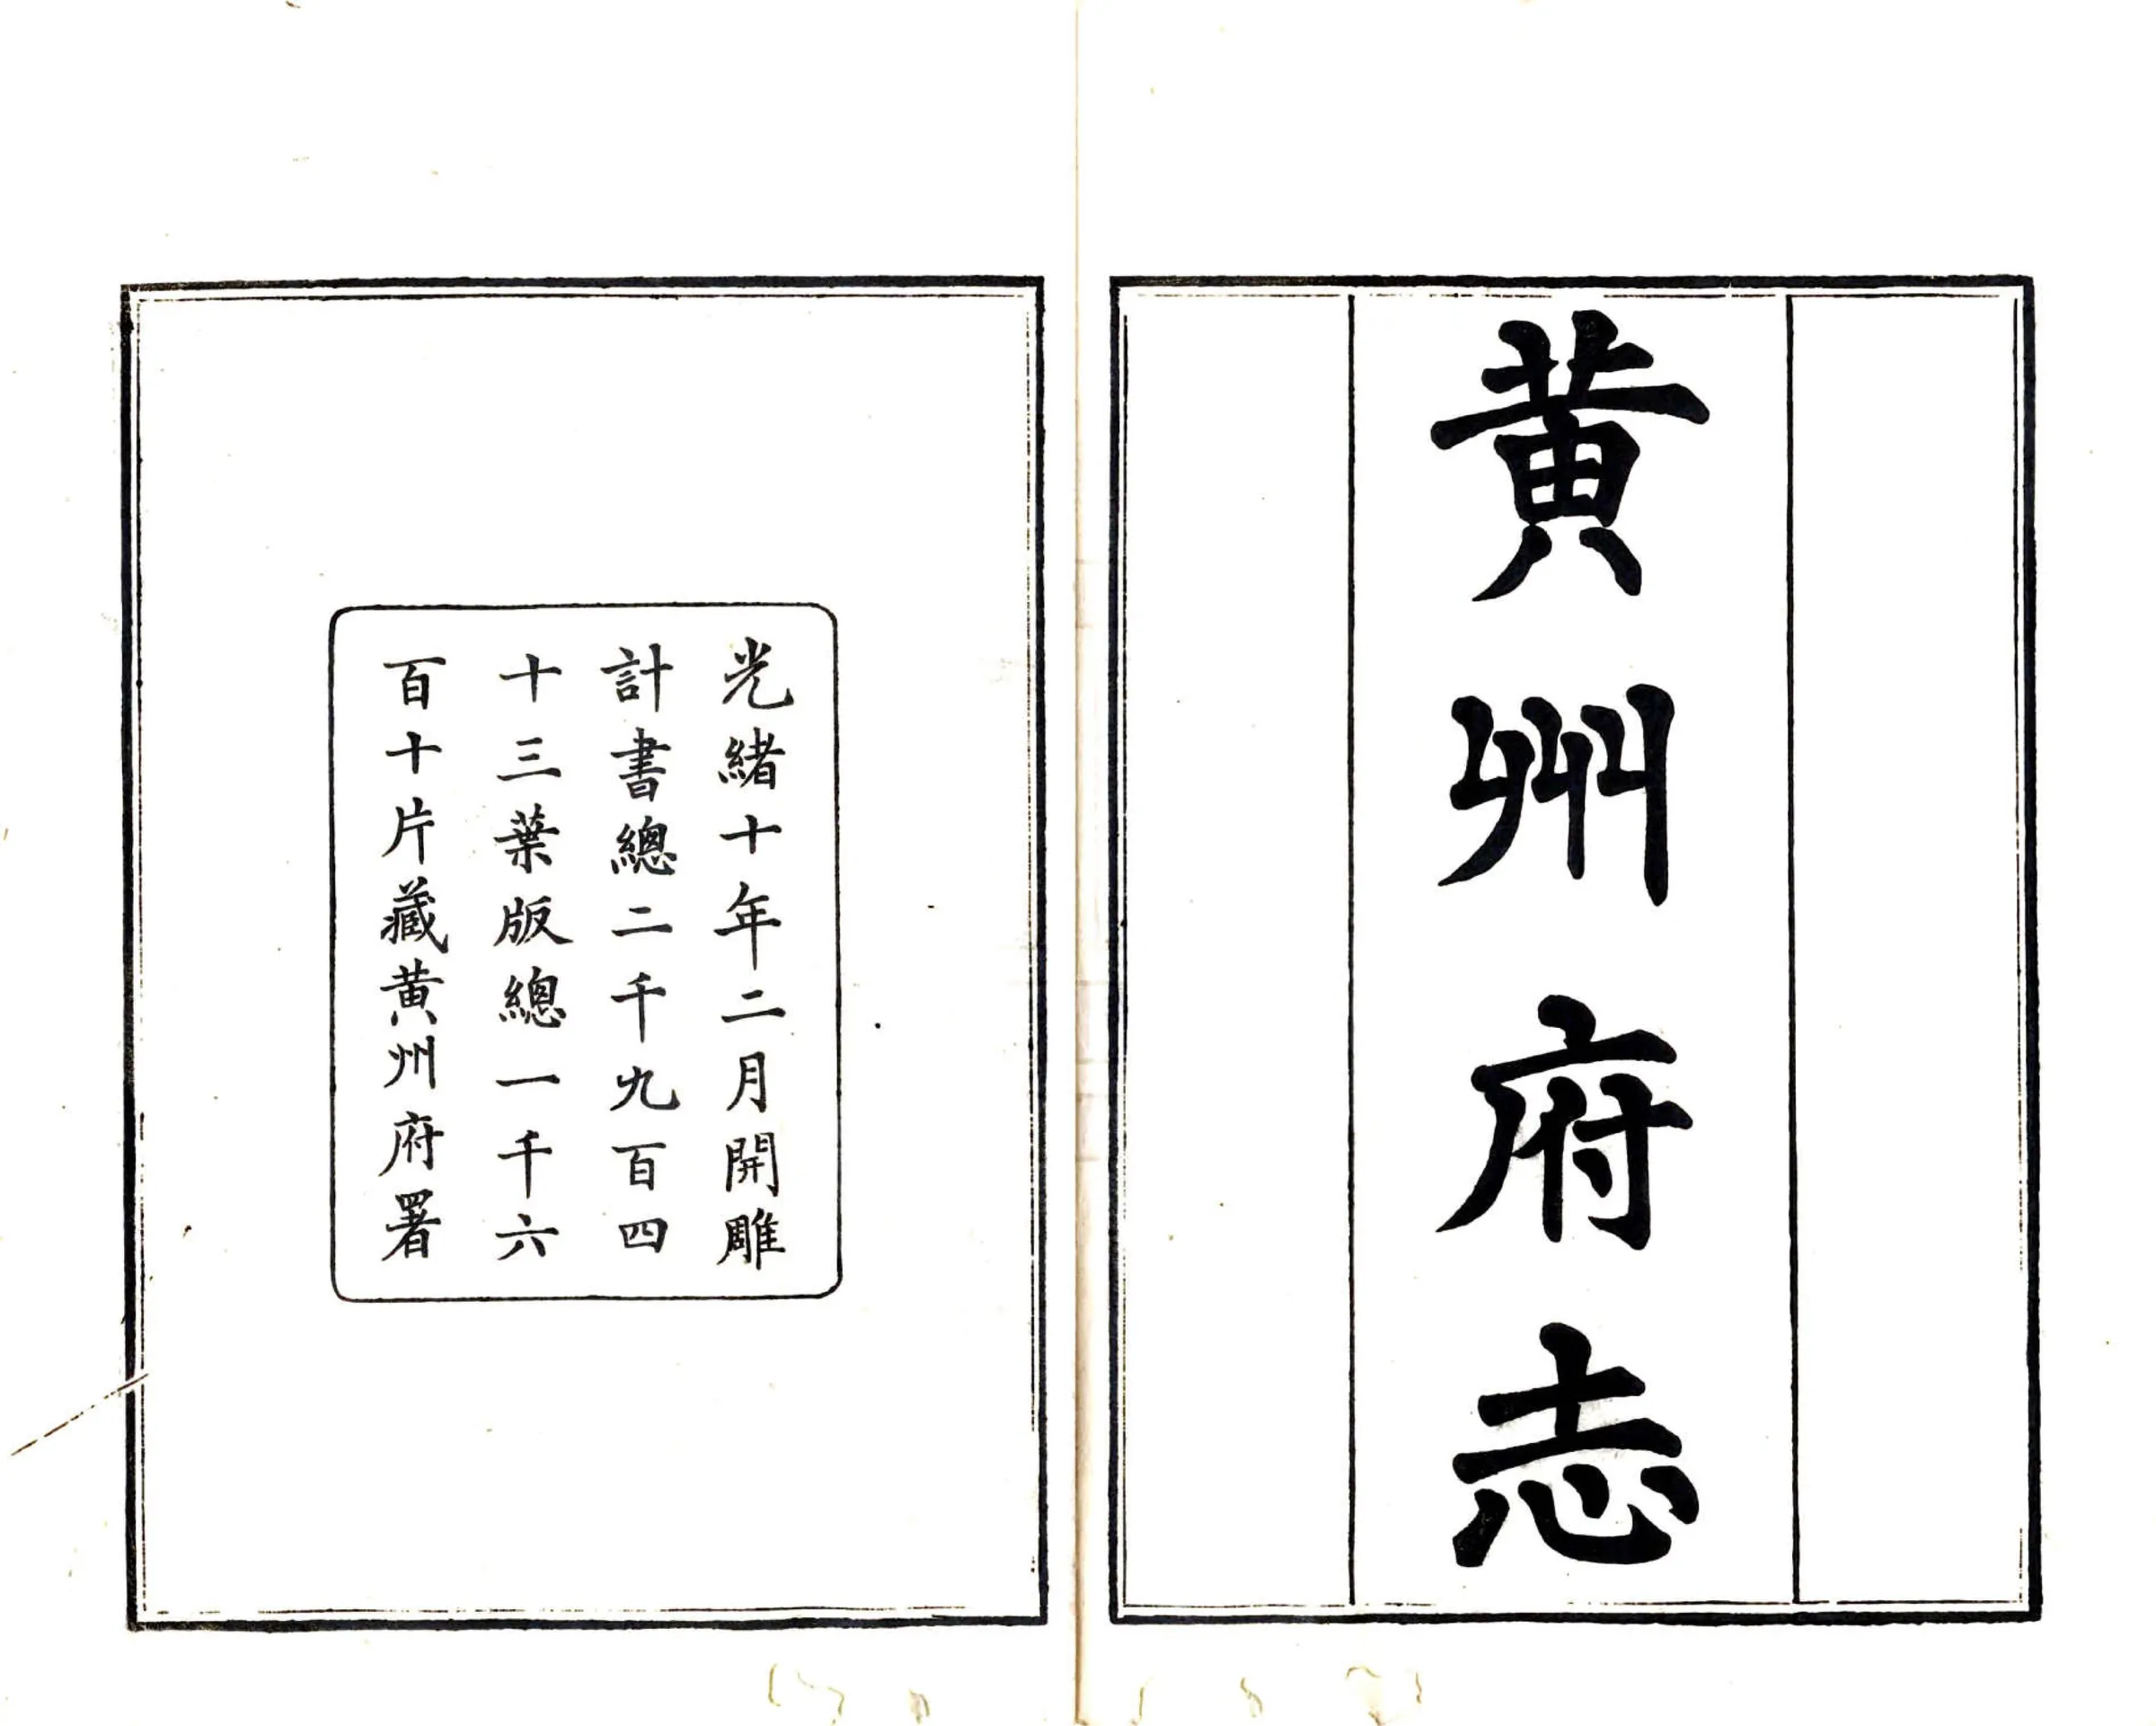 黄州府志
光緒十年二月開雕
計書總二千九百四
十三葉版總一千六
百十片藏黄州府署